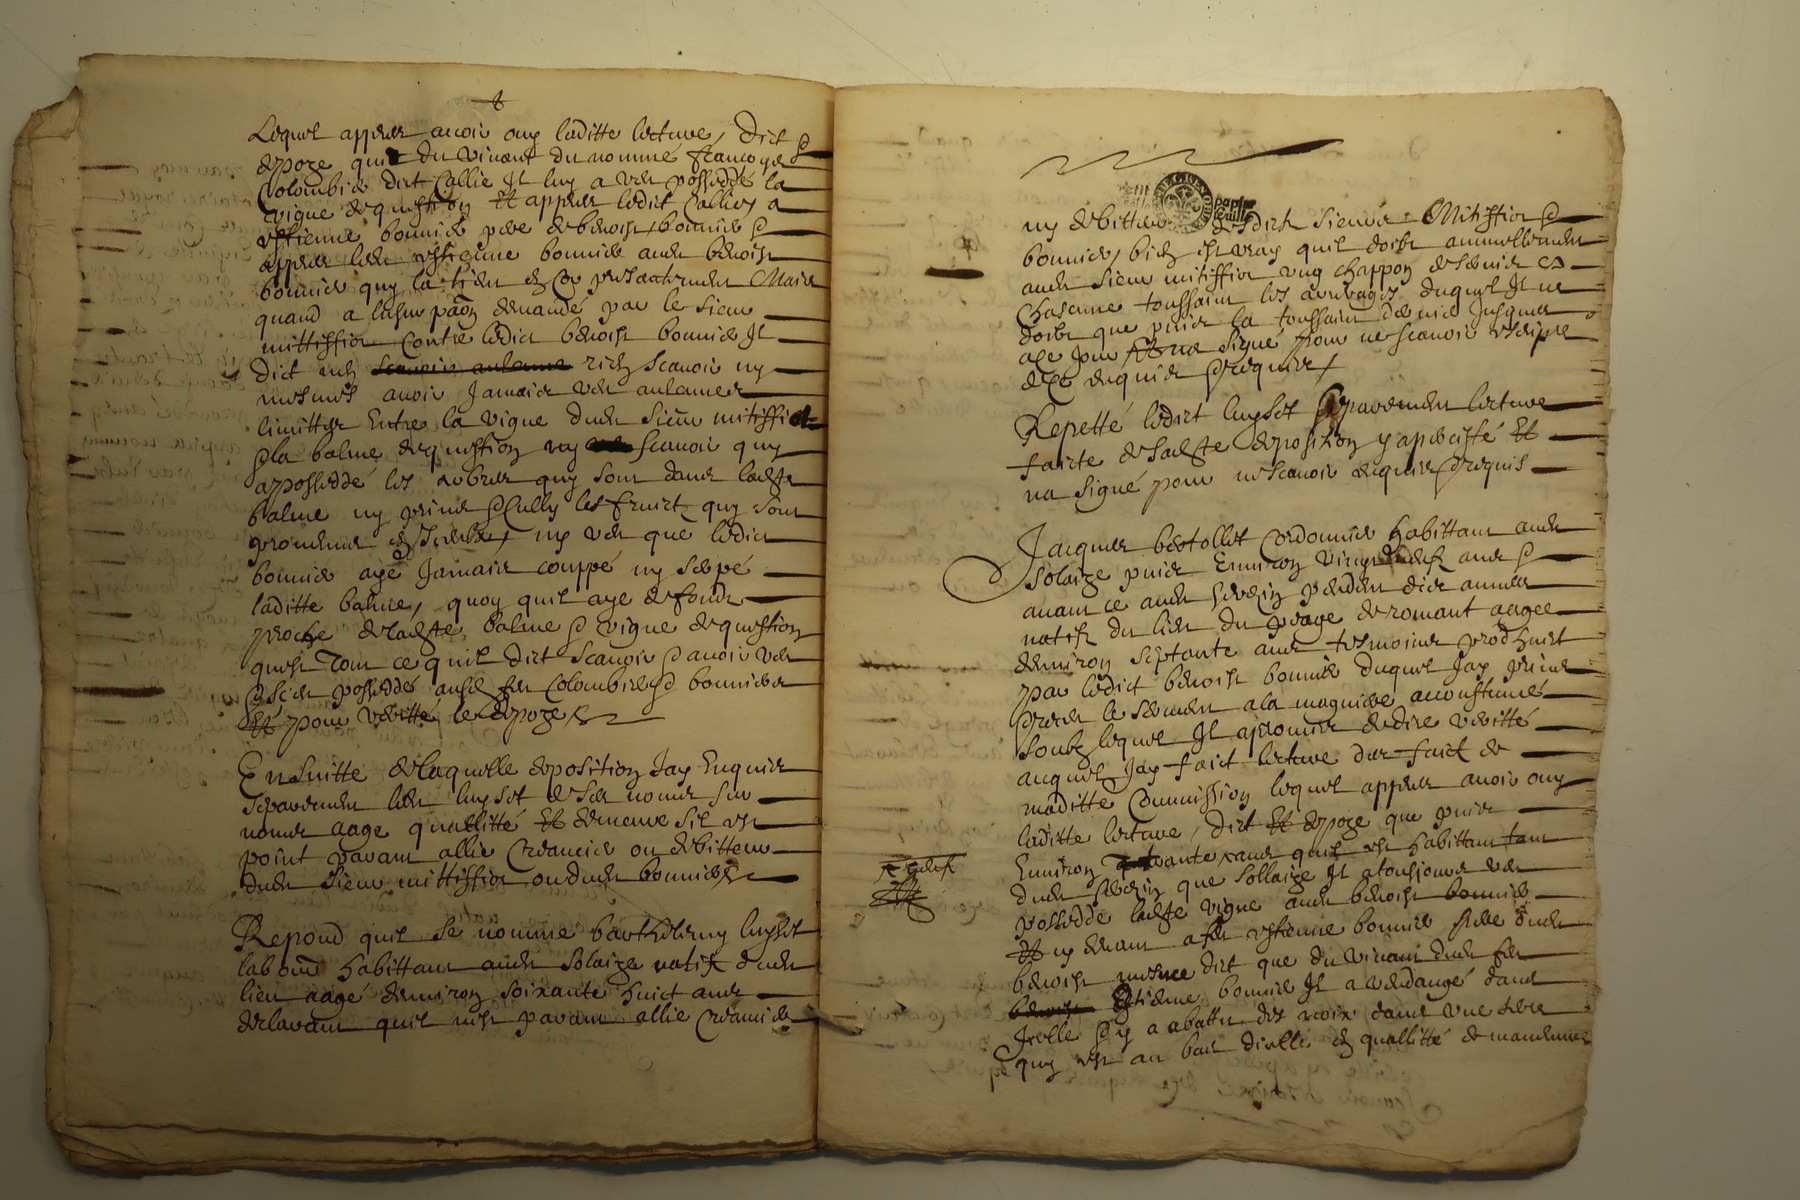 8
Lequel appres avoir ouy laditte lecture, dict &
depoze que du vivant du nommé françoys
Colombier dict Callie Il luy a veu posseddé la
vigne de question Et appres ledict Callies a
estienne bonnier pere de benoist bonnier &
appres led estienne bonnier aud benoist
bonnier quy la tien en Ce presantement Mais
quand a demandé par le sieur
mittiffiot Contre ledict benoist bonnier Il
dict rien scavoir ny
mesmes avoir Jamais veu aulcunes
limittes Entre la vigne dud sieur mitiffiot
& la balme de question ny scavoir quy
a posseddé les arbres quy sont dans ladte
balme ny prins & Cully les fruict quy sont
provenus ny veu que ledict
bonnier aye Jamais couppé ny serpé
laditte balme, quoy quil aye de fonds
proche de ladte balme & vigne de question
quest tout ce quil dict scavoir & avoir veu
posseddé aud feu Colombier & bonnier
Et pour veritté le depoze
En suitte de laquelle deposition Jay Enquis
separement led luyset de ses noms sur
noms aage quallitté Et demeure sil est
point parant allie Creancier ou debitteur
dud sieur mittiffiot ou dud bonnier
Repond quil se nomme barthelemy luyset
labour habittant aud Solaize natif dud
lieu aagé denviron soixante huict ans
declarant quil nest parant allie Creancier
ny debitteur desdict sieurs Mitiffiot &
bonnier, bien est vray quil doibt annuellement
aud sieur mitiffiot ung chappon de servis
Chascune toussaint les arreyrages duquel Il ne
doibt que puis la toussaint derniere Jusques
a ce Jour signé pour ne scavoir escripre
de ce enquis & requis
Repetté ledict luyset separement lecture
faicte de sadte deposition y a percisté Et
na signé pour ne scavoir enquis & requis
Jacques bertollet Cordonnier habittant aud
Solaize puis Environ vingt ans &
avant ce aud serezin pendant dix annees
natif du lieu du peage de romant aagee
denviron septante ans tesmoins prodhuict
par ledict benoist bonnier duquel Jay prins
& receu le serment a la maniere accoustumé
soubz lequel Il a promis de dire veritté
auquel Jay faict lecture des faict de
maditte Commission lequel appres avoir ouy
laditte lecture, dict Et depoze que puis
Environ ans quil est habittant tant
dud serezin que sollaize Il a tousjours veu
posseddé ladte vigne aud benoist bonnier
Et cy devant a feu estienne bonnier pere dud
benoist mesme dict que du vivant dud feu
Estienne bonnier Il a vendangé dans
Icelle & y a abattu des noix dans une terre
quy est au bas dicelle en quallitté de manoeuvre